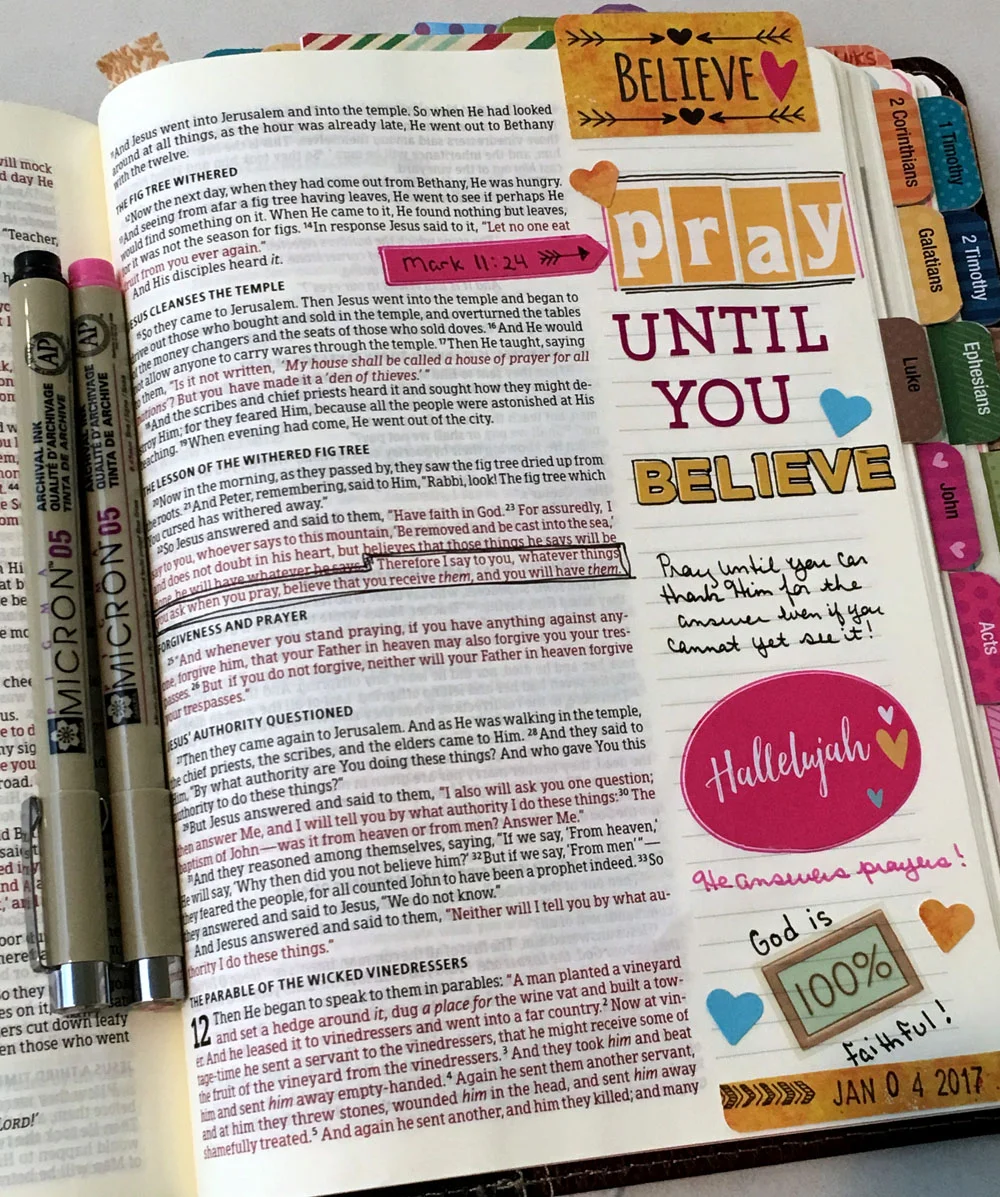 BELIEVE
11And Jesus went into Jerusalem and into the temple. So when He had looked
around at all things, as the hour was already late, He went out to Bethany
with the twelve.
THE FIG TREE WITHERED
12Now the next day, when they had come out from Bethany, He was hungry.
13And seeing from afar a fig tree having leaves, He went to see if perhaps He
would find something on it. When He came to it, He found nothing but leaves,
for it was not the season for figs. 14In response Jesus said to it, “Let no one eat
fruit from you ever again.”
And His disciples heard it.
JESUS CLEANSES THE TEMPLE
15So they came to Jerusalem. Then Jesus went into the temple and began to
drive out those who bought and sold in the temple, and overturned the tables
of the money changers and the seats of those who sold doves. 16And He would
not allow anyone to carry wares through the temple. 17Then He taught, saying
to them, “Is it not written, “My house shall be called a house of prayer for all
nations’? But you have made it a ‘den of thieves.’”
18And the scribes and chief priests heard it and sought how they might de-
stroy Him; for they feared Him, because all the people were astonished at His
teaching. 19When evening had come, He went out of the city.
THE LESSON OF THE WITHERED FIG TREE
20Now in the morning, as they passed by, they saw the fig tree dried up from
the roots. 21And Peter, remembering, said to Him, “Rabbi, look! The fig tree which
You cursed has withered away.”
22So Jesus answered and said to them, “Have faith in God. 23For assuredly, I
say to you, whoever says to this mountain, ‘Be removed and be cast into the sea,’
and does not doubt in his heart, but believes that those things he says will be
done, he will have whatever he says. Therefore I say to you, whatever things
you ask when you pray, believe that you receive them, and you will have them.
FORGIVENESS AND PRAYER
25“And whenever you stand praying, if you have anything against any-
one, forgive him, that your Father in heaven may also forgive you your tres-
passes. 26But if you do not forgive, neither will your Father in heaven forgive
your trespasses.”
JESUS’ AUTHORITY QUESTIONED
27Then they came again to Jerusalem. And as He was walking in the temple,
the chief priests, the scribes, and the elders came to Him. 28And they said to
Him, “By what authority are You doing these things? And who gave You this
authority to do these things?”
29But Jesus answered and said to them, “I also will ask you one question;
then answer Me, and I will tell you by what authority I do these things: 30The
baptism of John—was it from heaven or from men? Answer Me.”
31And they reasoned among themselves, saying, “If we say, ‘From heaven,’
He will say, ‘Why then did you not believe him?’ 32But if we say, ‘From men’”—
they feared the people, for all counted John to have been a prophet indeed. 33So
they answered and said to Jesus, “We do not know.”
And Jesus answered and said to them, “Neither will I tell you by what au-
thority I do these things.”
THE PARABLE OF THE WICKED VINEDRESSERS
12 Then He began to speak to them in parables: “A man planted a vineyard
and set a hedge around it, dug a place for the wine vat and built a tow-
er. And he leased it to vinedressers and went into a far country. 2Now at vin-
tage-time he sent a servant to the vinedressers, that he might receive some of
the fruit of the vineyard from the vinedressers. 3And they took him and beat
him and sent him away empty-handed. 4Again he sent them another servant,
and at him they threw stones, wounded him in the head, and sent him away
shamefully treated. 5And again he sent another, and him they killed; and many
Mark 11:24
pray
UNTIL
YOU
BELIEVE
Pray until you can
thank Him for the
answer even if you
cannot yet see it!
Hallelujah
He answers prayers!
God is
100%
faithful!
JAN 04 2017
2 Corinthians
1 Timothy
Galatians
2 Timothy
Luke
Ephesians
John
Acts
will mock
d day He
“Teacher,
ers cut down leafy
en those who went
LORD!’
AP
ARCHIVAL INK
QUALITÉ D'ARCHIVAGE
TINTA DE ARCHIVE
PIGMA
MICRON 05
AP
ARCHIVAL INK
QUALITÉ D'ARCHIVAGE
TINTA DE ARCHIVE
MICRON 05